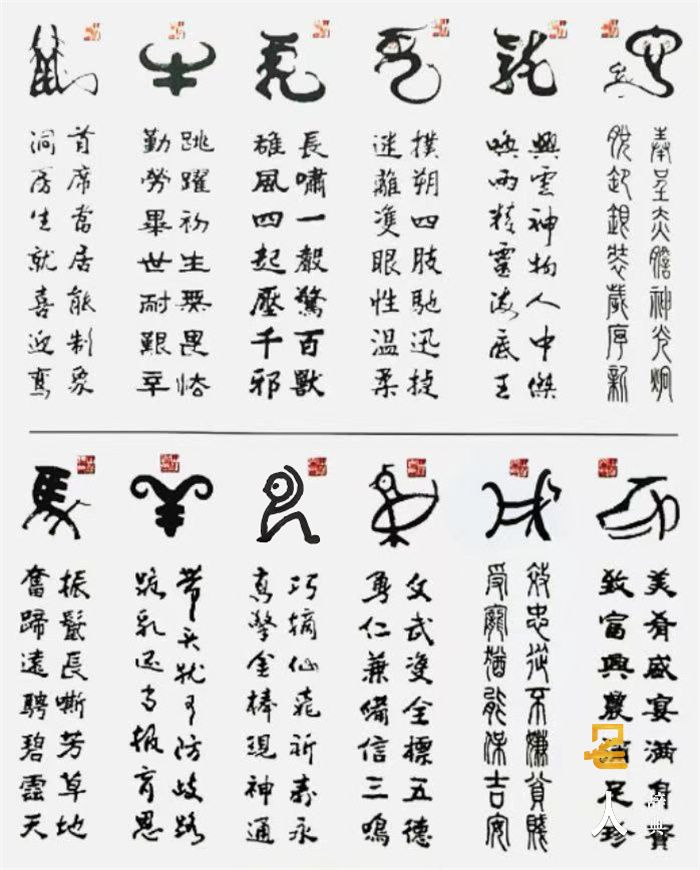 鼠
首席當居能制象
洞房生就喜迎鸞
牛
跳躍初生無畏怯
勤勞畢世耐艱辛
虎
長嘯一聲驚百獸
雄風四起壓千邪
兔
撲朔四肢馳迅捷
迷離雙眼性溫柔
龍
興雲神物人中傑
喚雨精靈海底王
蛇
奉呈 膽神光炯
脫卻銀裝歲序新
馬
振鬣長嘶芳草地
奮蹄遠騁碧雲天
羊
帶頭犹可防歧路
跪乳還當報育恩
猴
巧摘仙桃祈壽永
高擎金棒現神通
雞
文武雙全標五德
勇仁兼備信三鳴
狗
效忠從不嫌貧賤
受寵猶能保吉安
美肴盛宴滿身寶
致富興農 足珍
名人